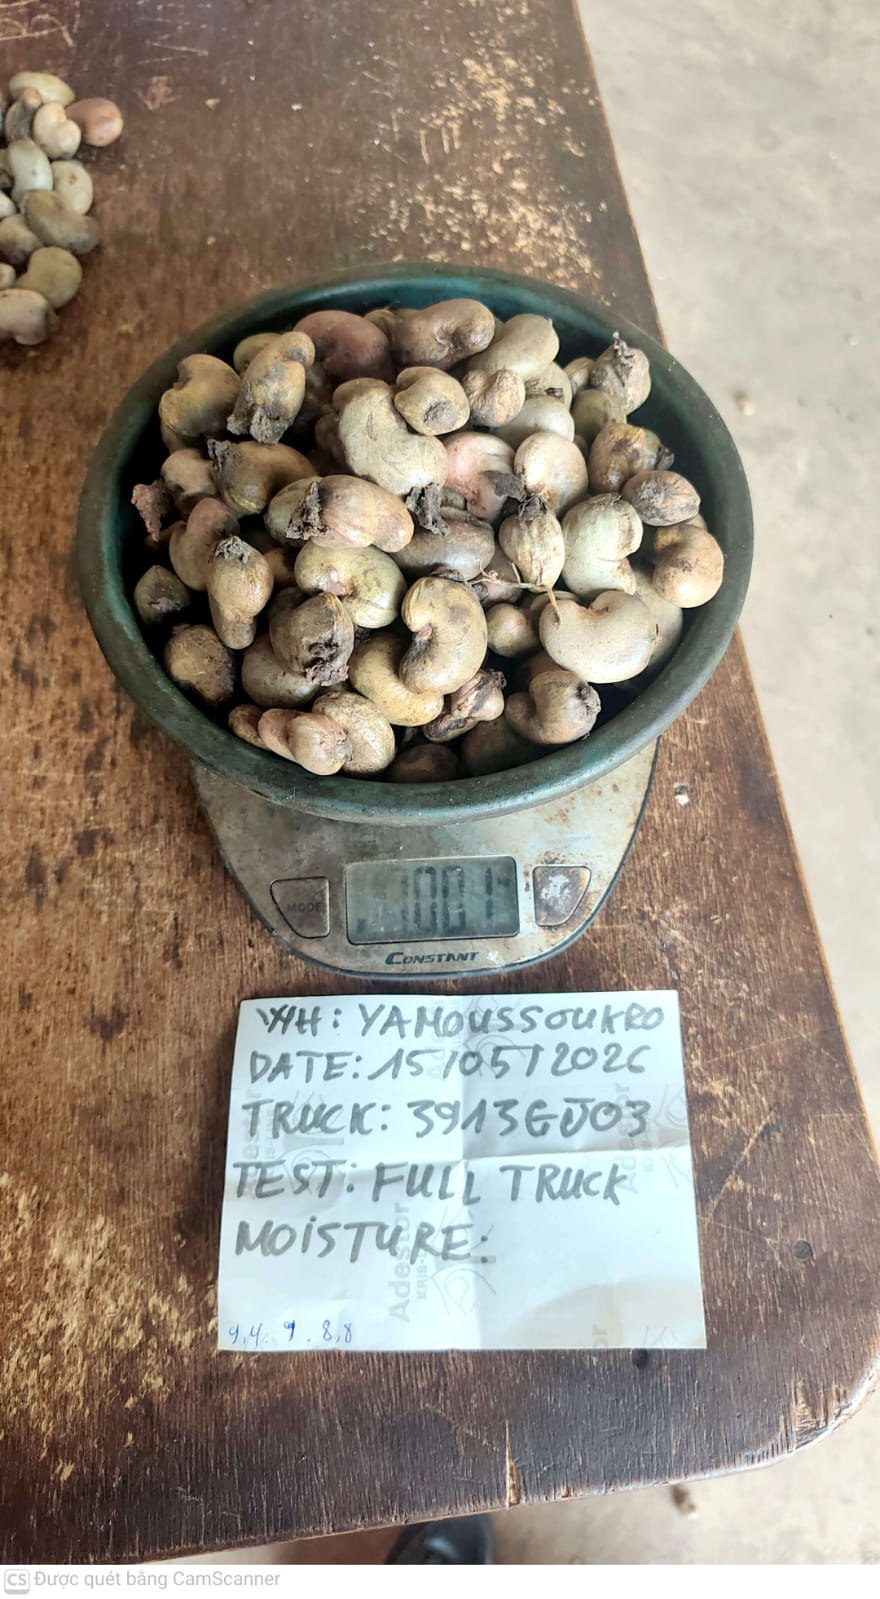 MODE
1001
CONSTANT
WH: YAMOUSSOUKRO
DATE: 15/05/2026
TRUCK: 3913GJ03
TEST: FULL TRUCK
MOISTURE:
9,4. 9. 8,8
Adestor
KRIS-
CS Được quét bằng CamScanner